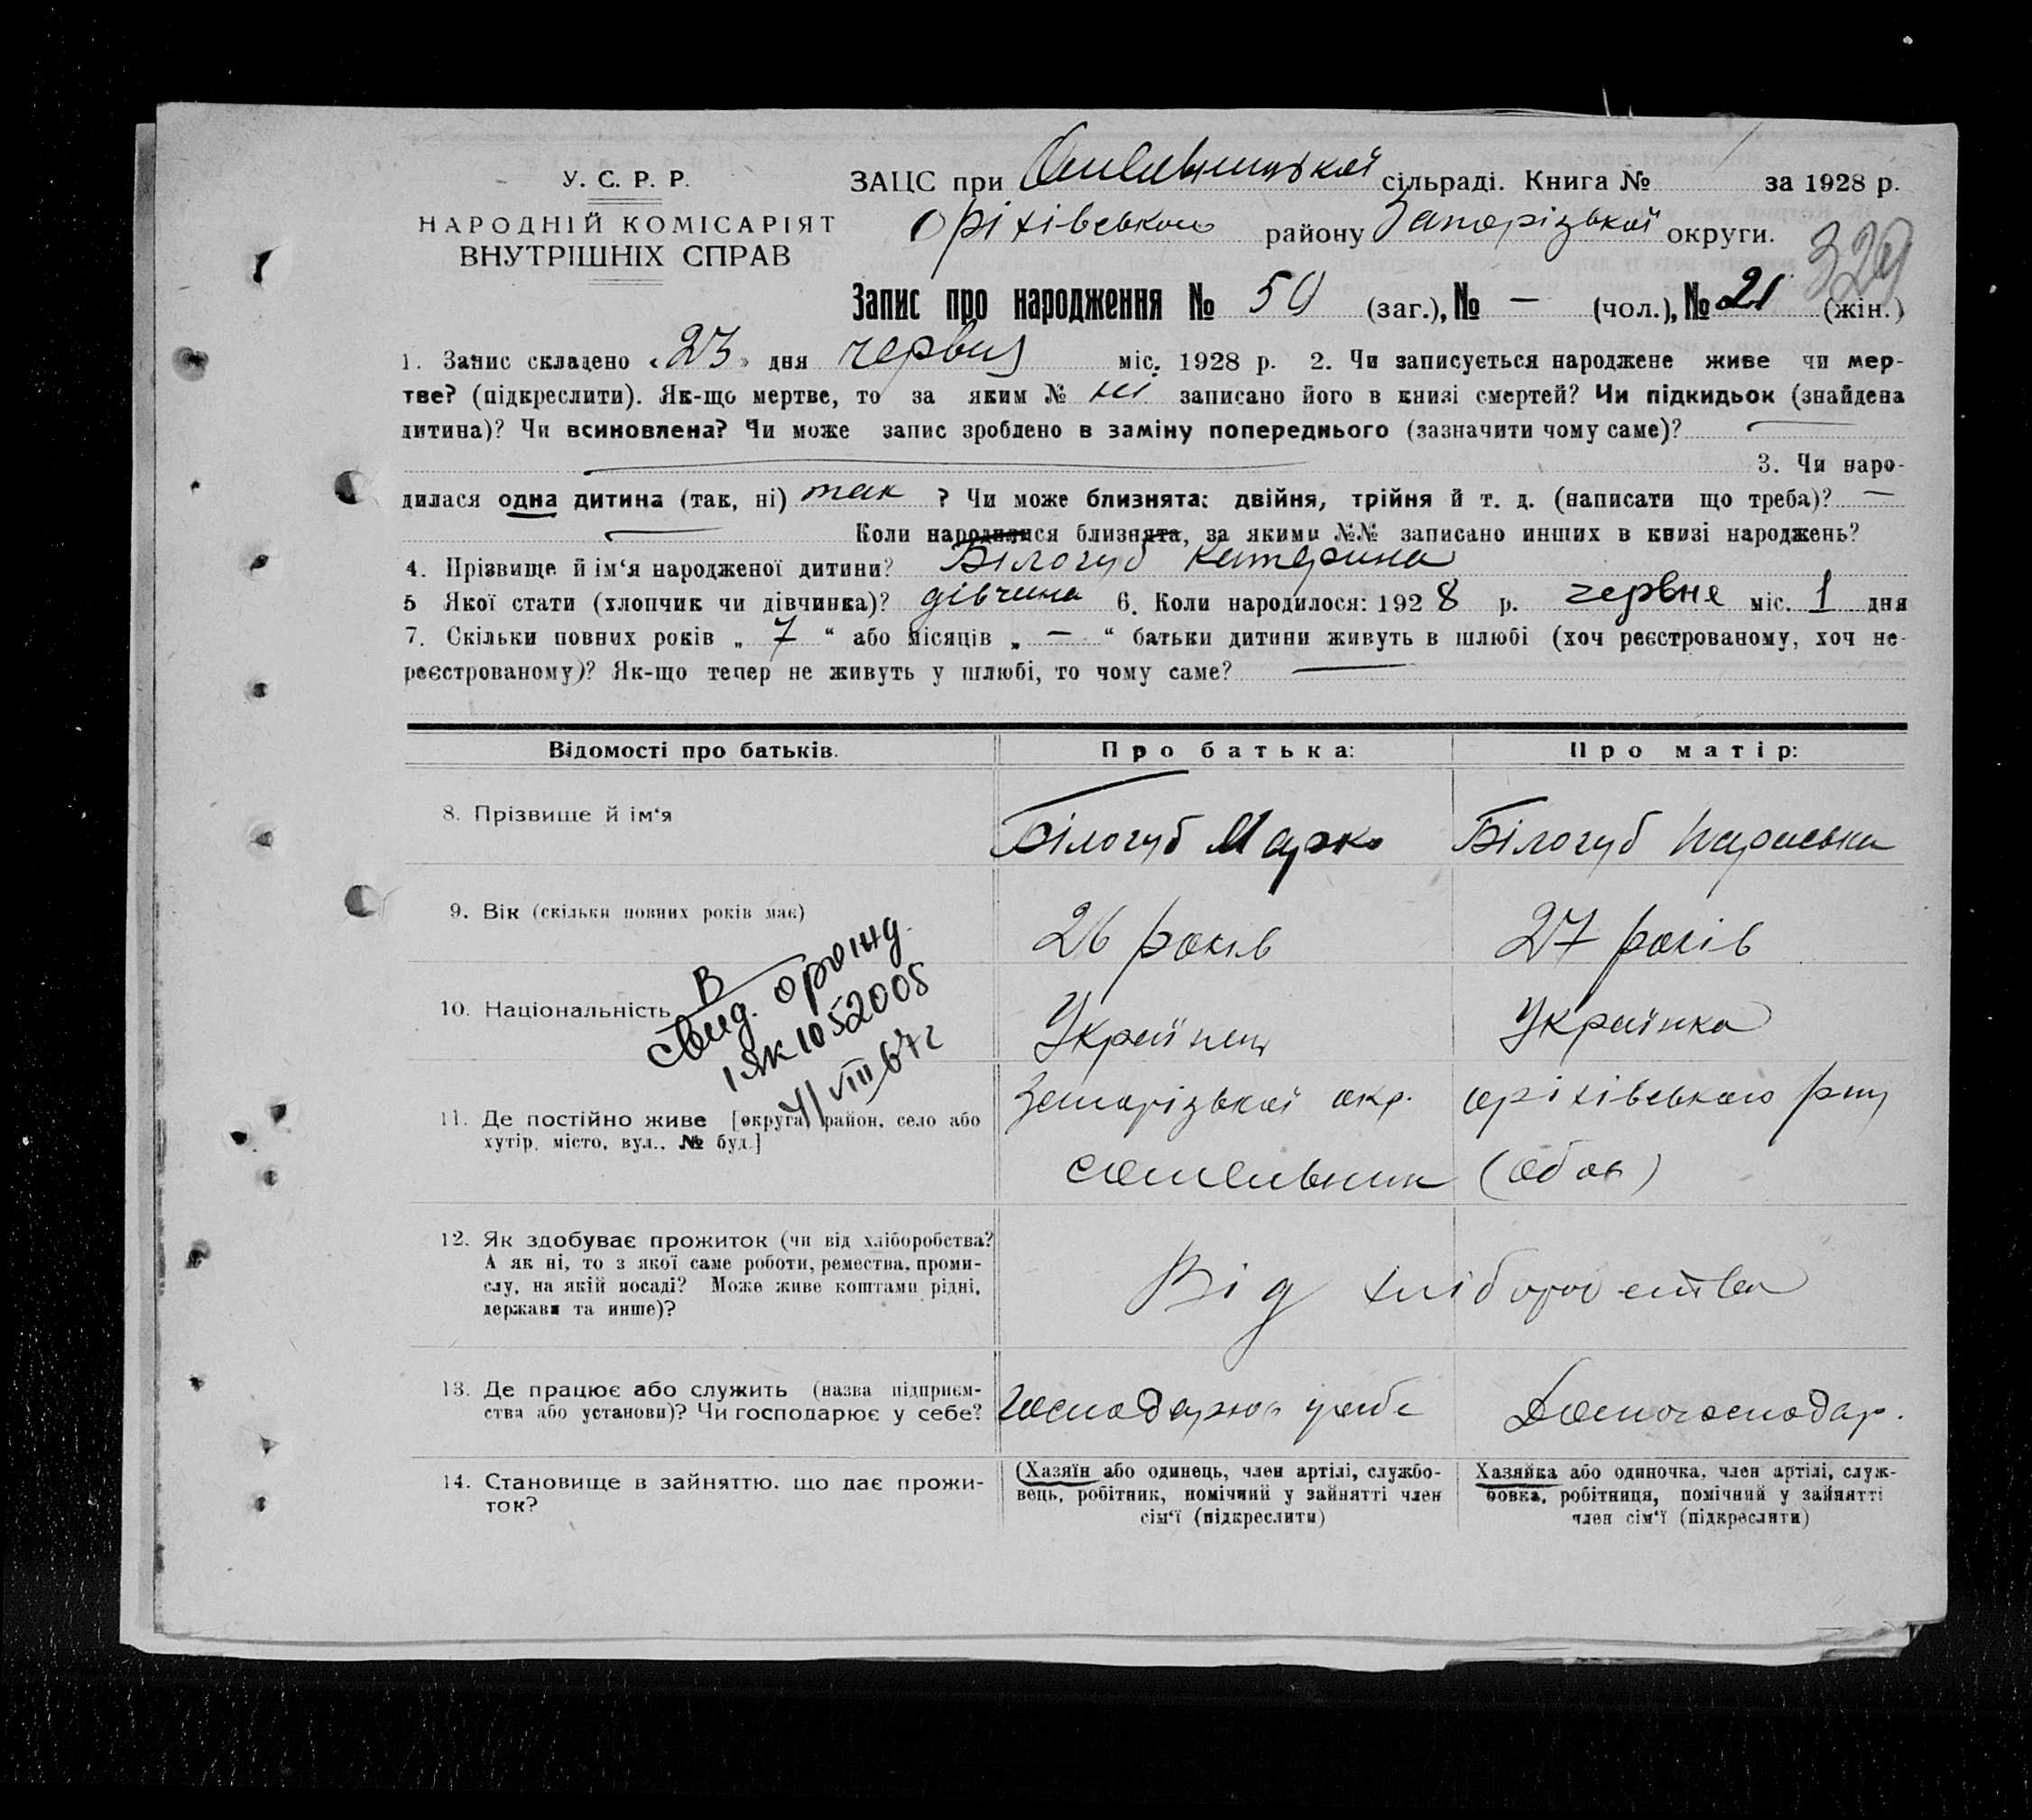 У. С. Р. Р.
НАРОДНІЙ КОМІСАРІЯТ
ВНУТРІШНІХ СПРАВ
ЗАЦС при сільраді. Книга № за 1928 р.
Оріхівського району Запорізької округи.
329
Запис про народження № 50 (заг.), № — (чол.), № 21 (жін.)
1. Запис складено «23» дня червня міс. 1928 р. 2. Чи записується народжене живе чи мер-
тве? (підкреслити). Як-що мертве, то за яким № записано його в книзі смертей? Чи підкидьок (знайдена
дитина)? Чи всиновлена? Чи може запис зроблено в заміну попереднього (зазначити чому саме)? —
— 3. Чи наро-
дилася одна дитина (так, ні) так ? Чи може близнята: двійня, трійня й т. д. (написати що треба)? —
— Коли народилися близнята, за якими №№ записано инших в книзі народжень?
4. Прізвище й ім‘я народженої дитини? Білогуб Катерина
5 Якої стати (хлопчик чи дівчинка)? дівчина 6. Коли народилося: 1928 р. червня міс. 1 дня
7. Скільки повних років „ 7 “ або місяців „ — “ батьки дитини живуть в шлюбі (хоч реєстрованому, хоч не-
реєстрованому)? Як-що тепер не живуть у шлюбі, то чому саме? —
Відомості про батьків. Про батька: Про матір:
8. Прізвище й ім‘я Білогуб Марко Білогуб Параска
9. Вік (скільки повних років має) 26 років 27 років
10. Національність Українець Українка
В
Свид. о рожд.
I ЯК 1052008
4/VIII 67 г
11. Де постійно живе [округа, район, село або Запорізької окр. Оріхівського р-ну
хутір, місто, вул., № буд.] (обоє)
12. Як здобуває прожиток (чи від хліборобства? Від хліборобства
А як ні, то з якої саме роботи, ремества, проми-
слу, на якій посаді? Може живе коштами рідні,
держави та инше)?
13. Де працює або служить (назва підприєм- Господарює у себе Домогосподар.
ства або установи)? Чи господарює у себе?
14. Становище в зайняттю, що дає прожи-
ток?
(Хазяїн або одинець, член артілі, службо-
вець, робітник, помічний у зайнятті член
сім‘ї (підкреслити)
Хазяйка або одиночка, член артілі, служ-
бовка, робітниця, помічний у зайнятті
член сім‘ї (підкреслити)